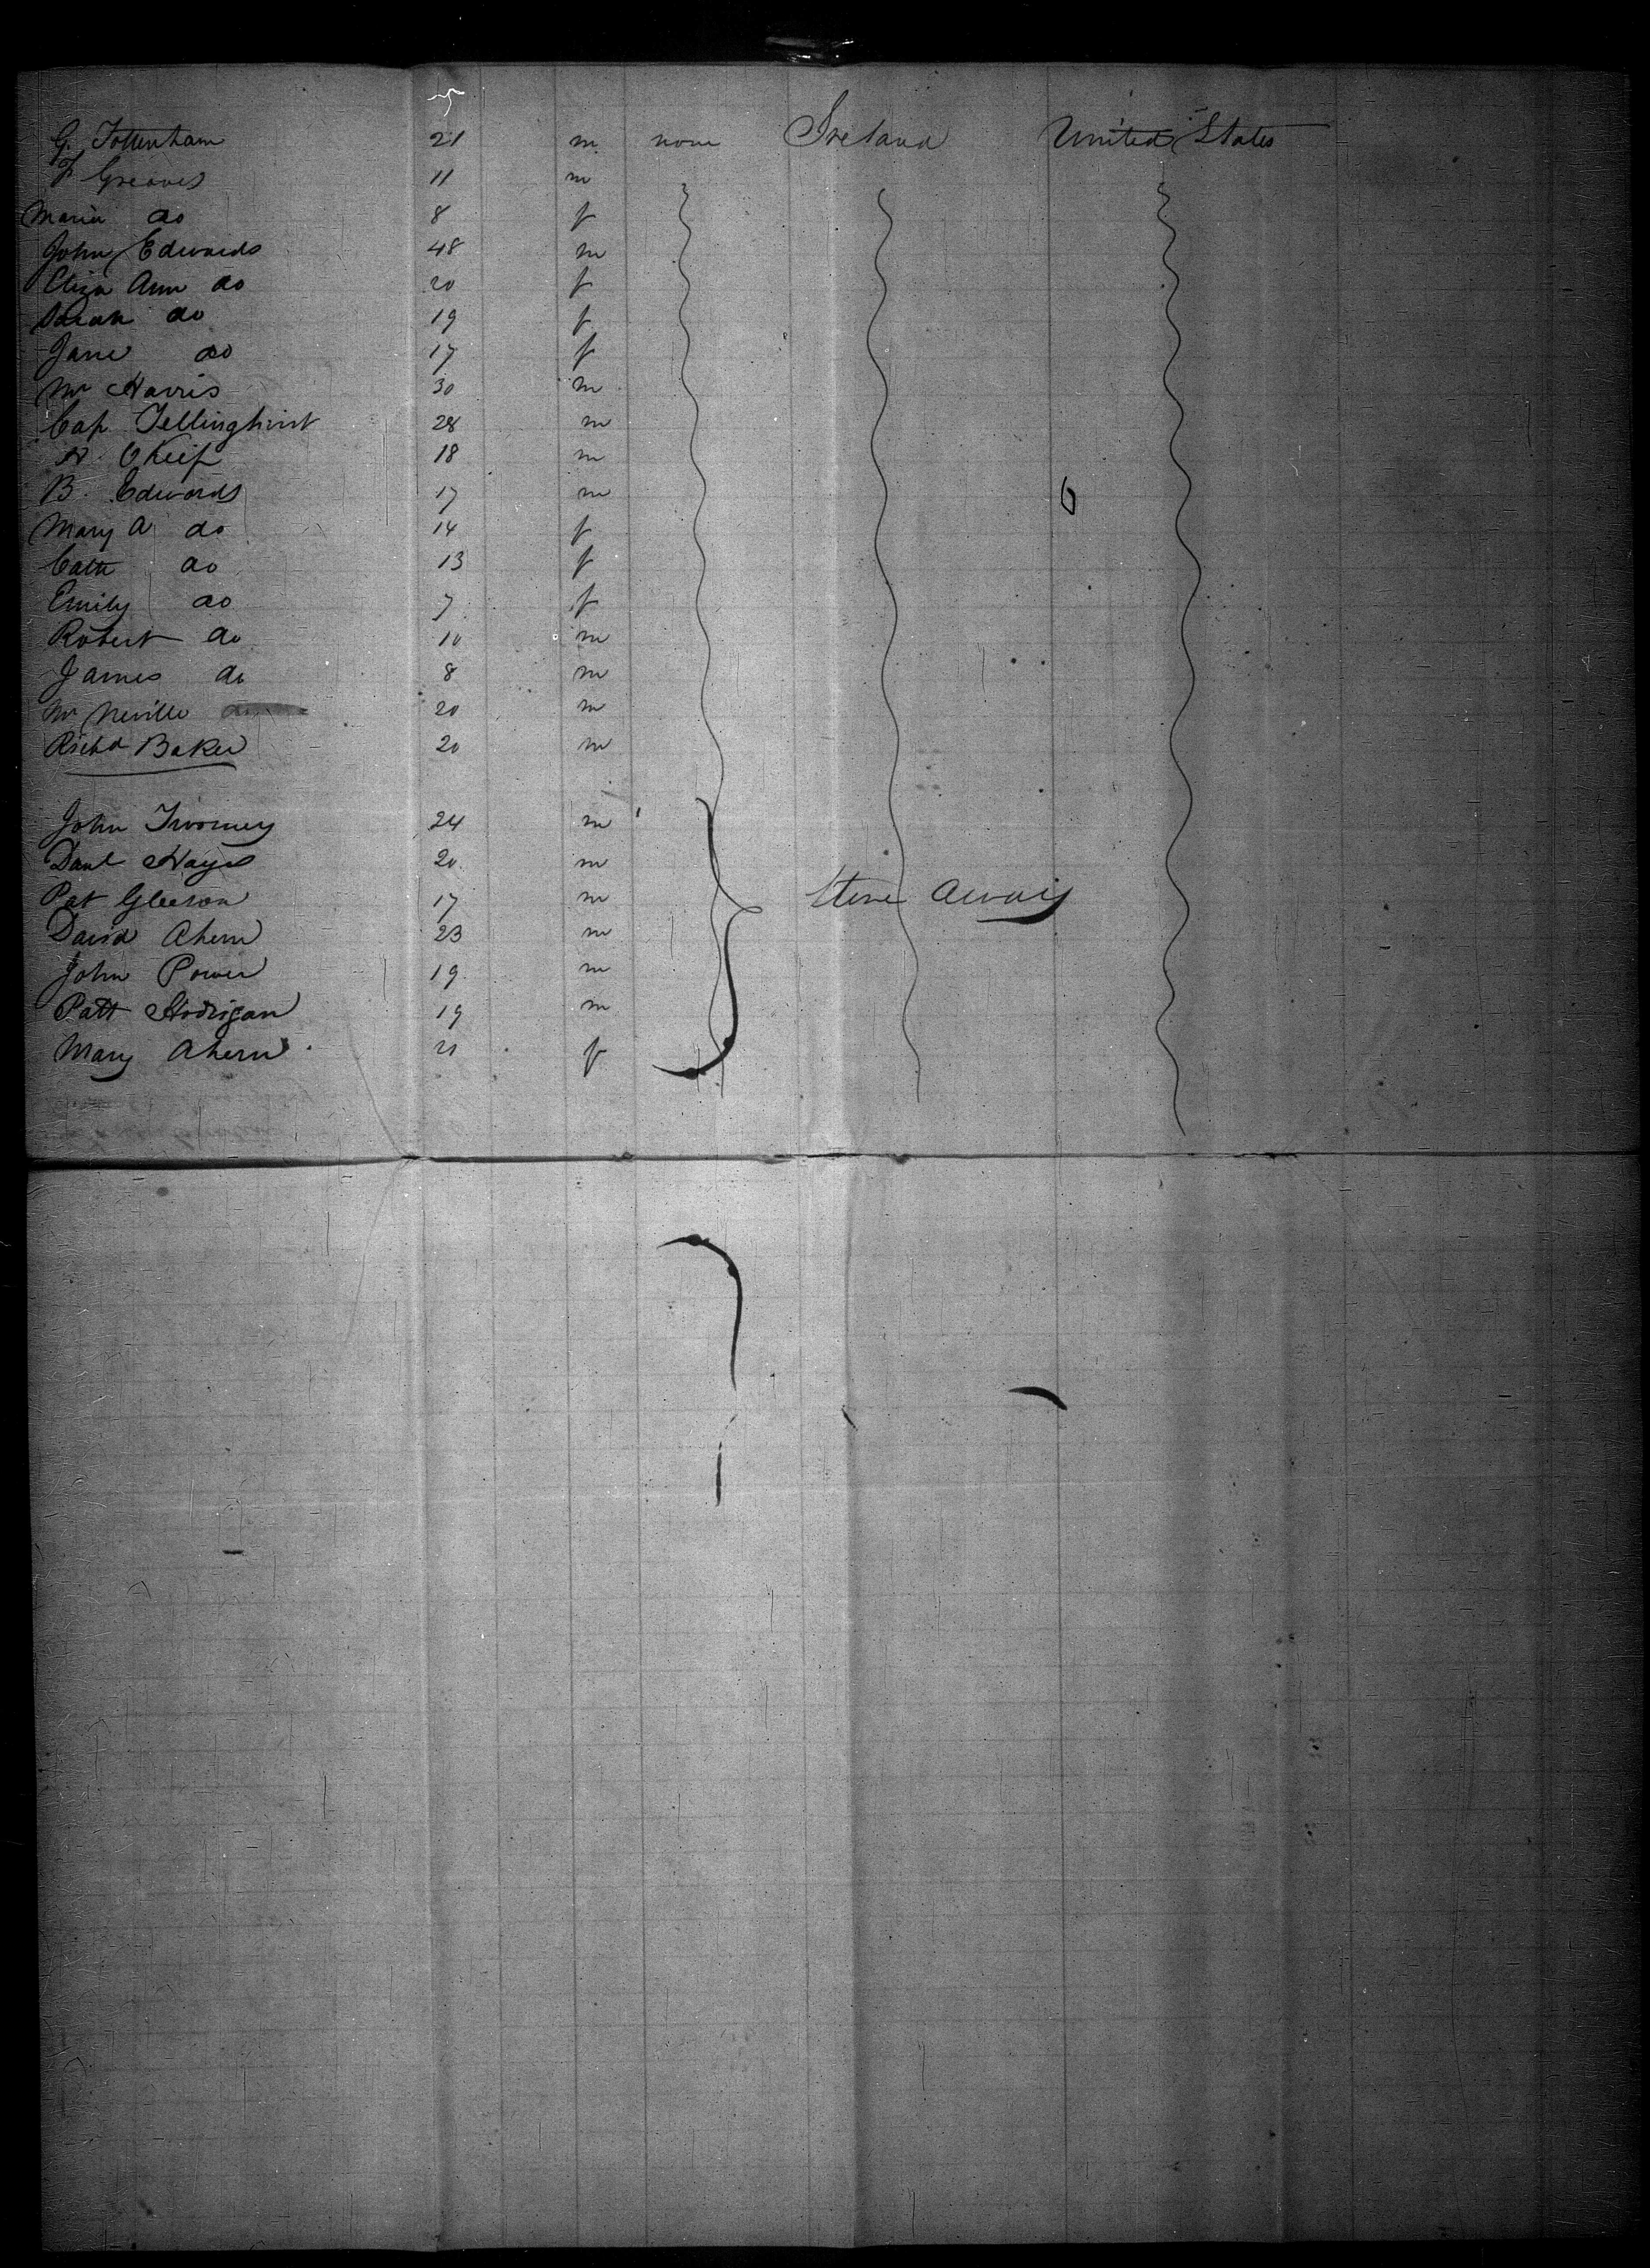 G. Tottenham 21 m none Ireland United States
F Greaves 11 m
Maria do 8 f
John Edwards 48 m
Eliza Ann do 20 f
Sarah do 19 f
Jane do 17 f
Mr Harris 30 m
Cap Tellinghirst 28 m
O'Keif 18 m
B. Edwards 17 m
Mary A do 14 f
Cath do 13 f
Emily do 7 f
Robert do 10 m
James do 8 m
Mr Neville 20 m
Richd Baker 20 m
John Twomey 24 m
Danl Hayes 20 m
Pat Gleeson 17 m
Stow Away
David Ahern 23 m
John Power 19 m
Patt Hodigan 19 m
Mary Ahern 21 f